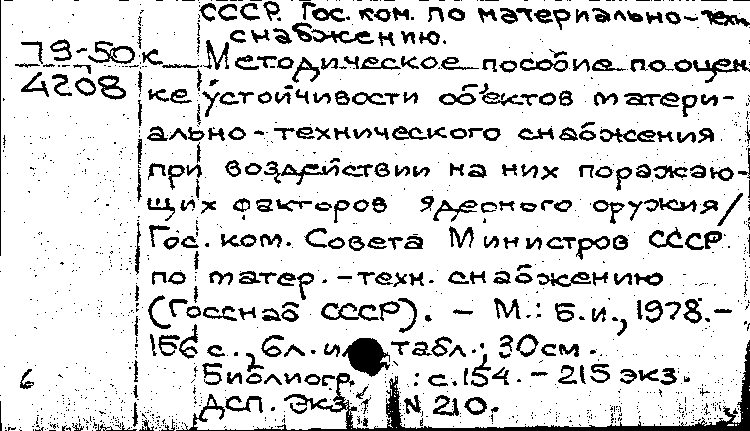 СССР. Гос. ком. по материально-техн.
снабжению.
79-50к Методическое пособие по оцен
4208 ке устойчивости объектов матери-
ально-технического снабжения
при воздействии на них поражаю-
щих факторов ядерного оружия/
Гос. ком. Совета Министров СССР
по матер.-техн. снабжению
(Госснаб СССР). - М.: Б.и., 1978.-
156 с., 6л. табл.; 30см.
6 Библиогр. : с.154. - 215 экз.
ДСП. Экз. N 210.